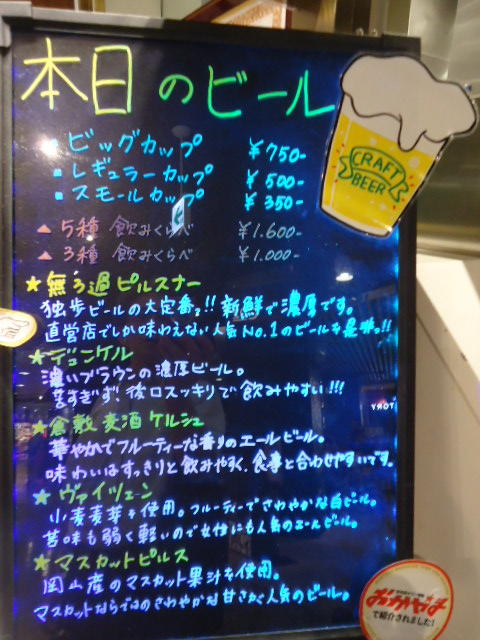 本日のビール
■ ビッグカップ ¥750-
■ レギュラーカップ ¥500-
■ スモールカップ ¥350-
CRAFT
BEER
▲ 5種 飲みくらべ ¥1.600-
▲ 3種 飲みくらべ ¥1.000-
★無ろ過ピルスナー
独歩ビールの大定番!! 新鮮で濃厚です。
直営店でしか味わえない人気No.1のビールを是味!!
★デュンケル
濃いブラウンの濃厚ビール。
苦すぎず、後口スッキリで飲みやすい!!!
★倉敷麦酒 ケルシュ
華やかでフルーティーな香りのエールビール。
味わいはすっきりと飲みやすく、食事と合わせやすいです。
★ヴァイツェーン
小麦麦芽を使用。フルーティーでさわやかな白ビール。
苦味も弱く軽いので女性にも人気のエールビール。
★マスカットピルス
岡山産のマスカット果汁を使用。
マスカットならではのさわやかな甘さがで人気のビール。
で紹介されました!